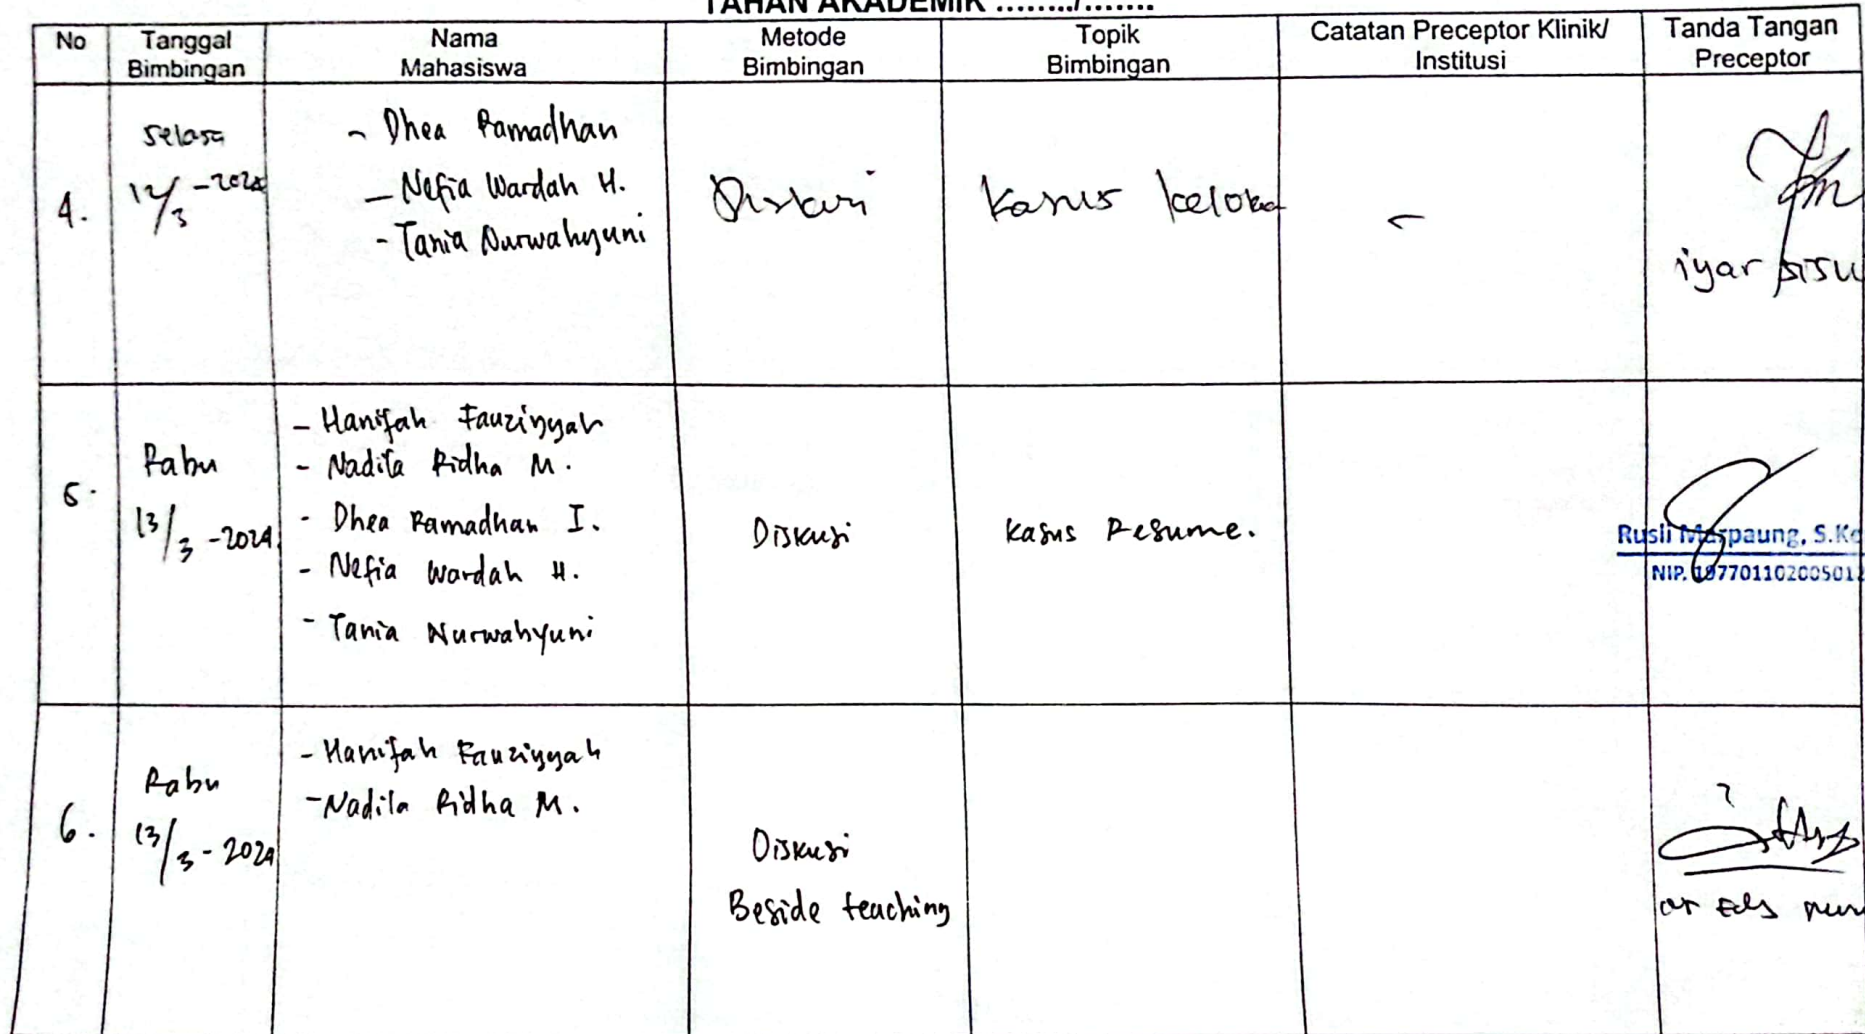 TAHAN AKADEMIK ......../.......
No
Tanggal
Bimbingan
Nama
Mahasiswa
Metode
Bimbingan
Topik
Bimbingan
Catatan Preceptor Klinik/
Institusi
Tanda Tangan
Preceptor
4.
Selasa
12/3-2024
- Dhea Ramadhan
- Nefia Wardah H.
- Tania Nurwahyuni
Diskusi
Kasus kelola
-
iyar
5.
Rabu
13/3-2024
- Hanifah Fauziyyah
- Nadila Ridha M.
- Dhea Ramadhan I.
- Nefia Wardah H.
- Tania Nurwahyuni
Diskusi
Kasus Resume.
Rusli Marpaung, S.Ke
NIP. 197701102005012
6.
Rabu
13/3-2024
- Hanifah Fauziyyah
- Nadila Ridha M.
Diskusi
Beside teaching